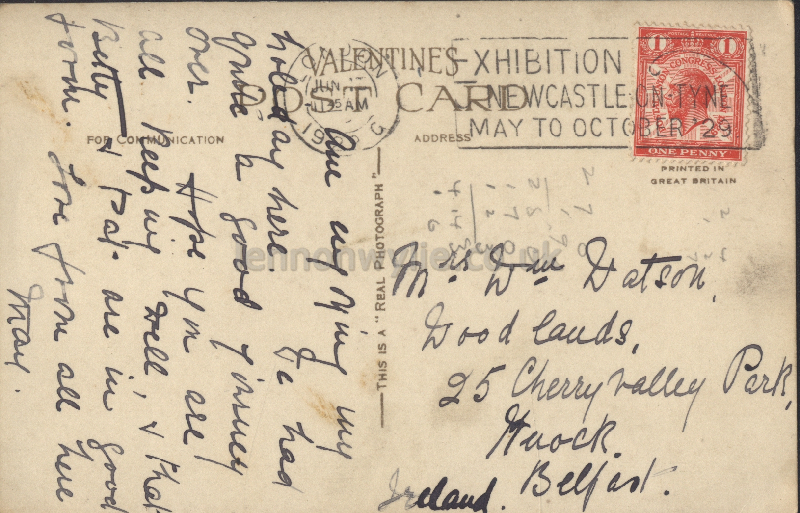 VALENTINES
POST CARD
FOR COMMUNICATION
ADDRESS
JUN
11 15 AM
EXHIBITION
NEWCASTLE-ON-TYNE
MAY TO OCTOBER 29
POSTAL UNION CONGRESS
1
1
ONE PENNY
PRINTED IN
GREAT BRITAIN
THIS IS A "REAL PHOTOGRAPH"
Am enjoying my
holiday here. We had
quite a good journey
over. Hope you are
all keeping well, & that
Betty & Pat are in good
form. Love from all here
May.
Mrs Wm Watson,
Woodlands,
25 Cherryvalley Park,
Knock.
Belfast.
Ireland.
lennonwylie.co.uk